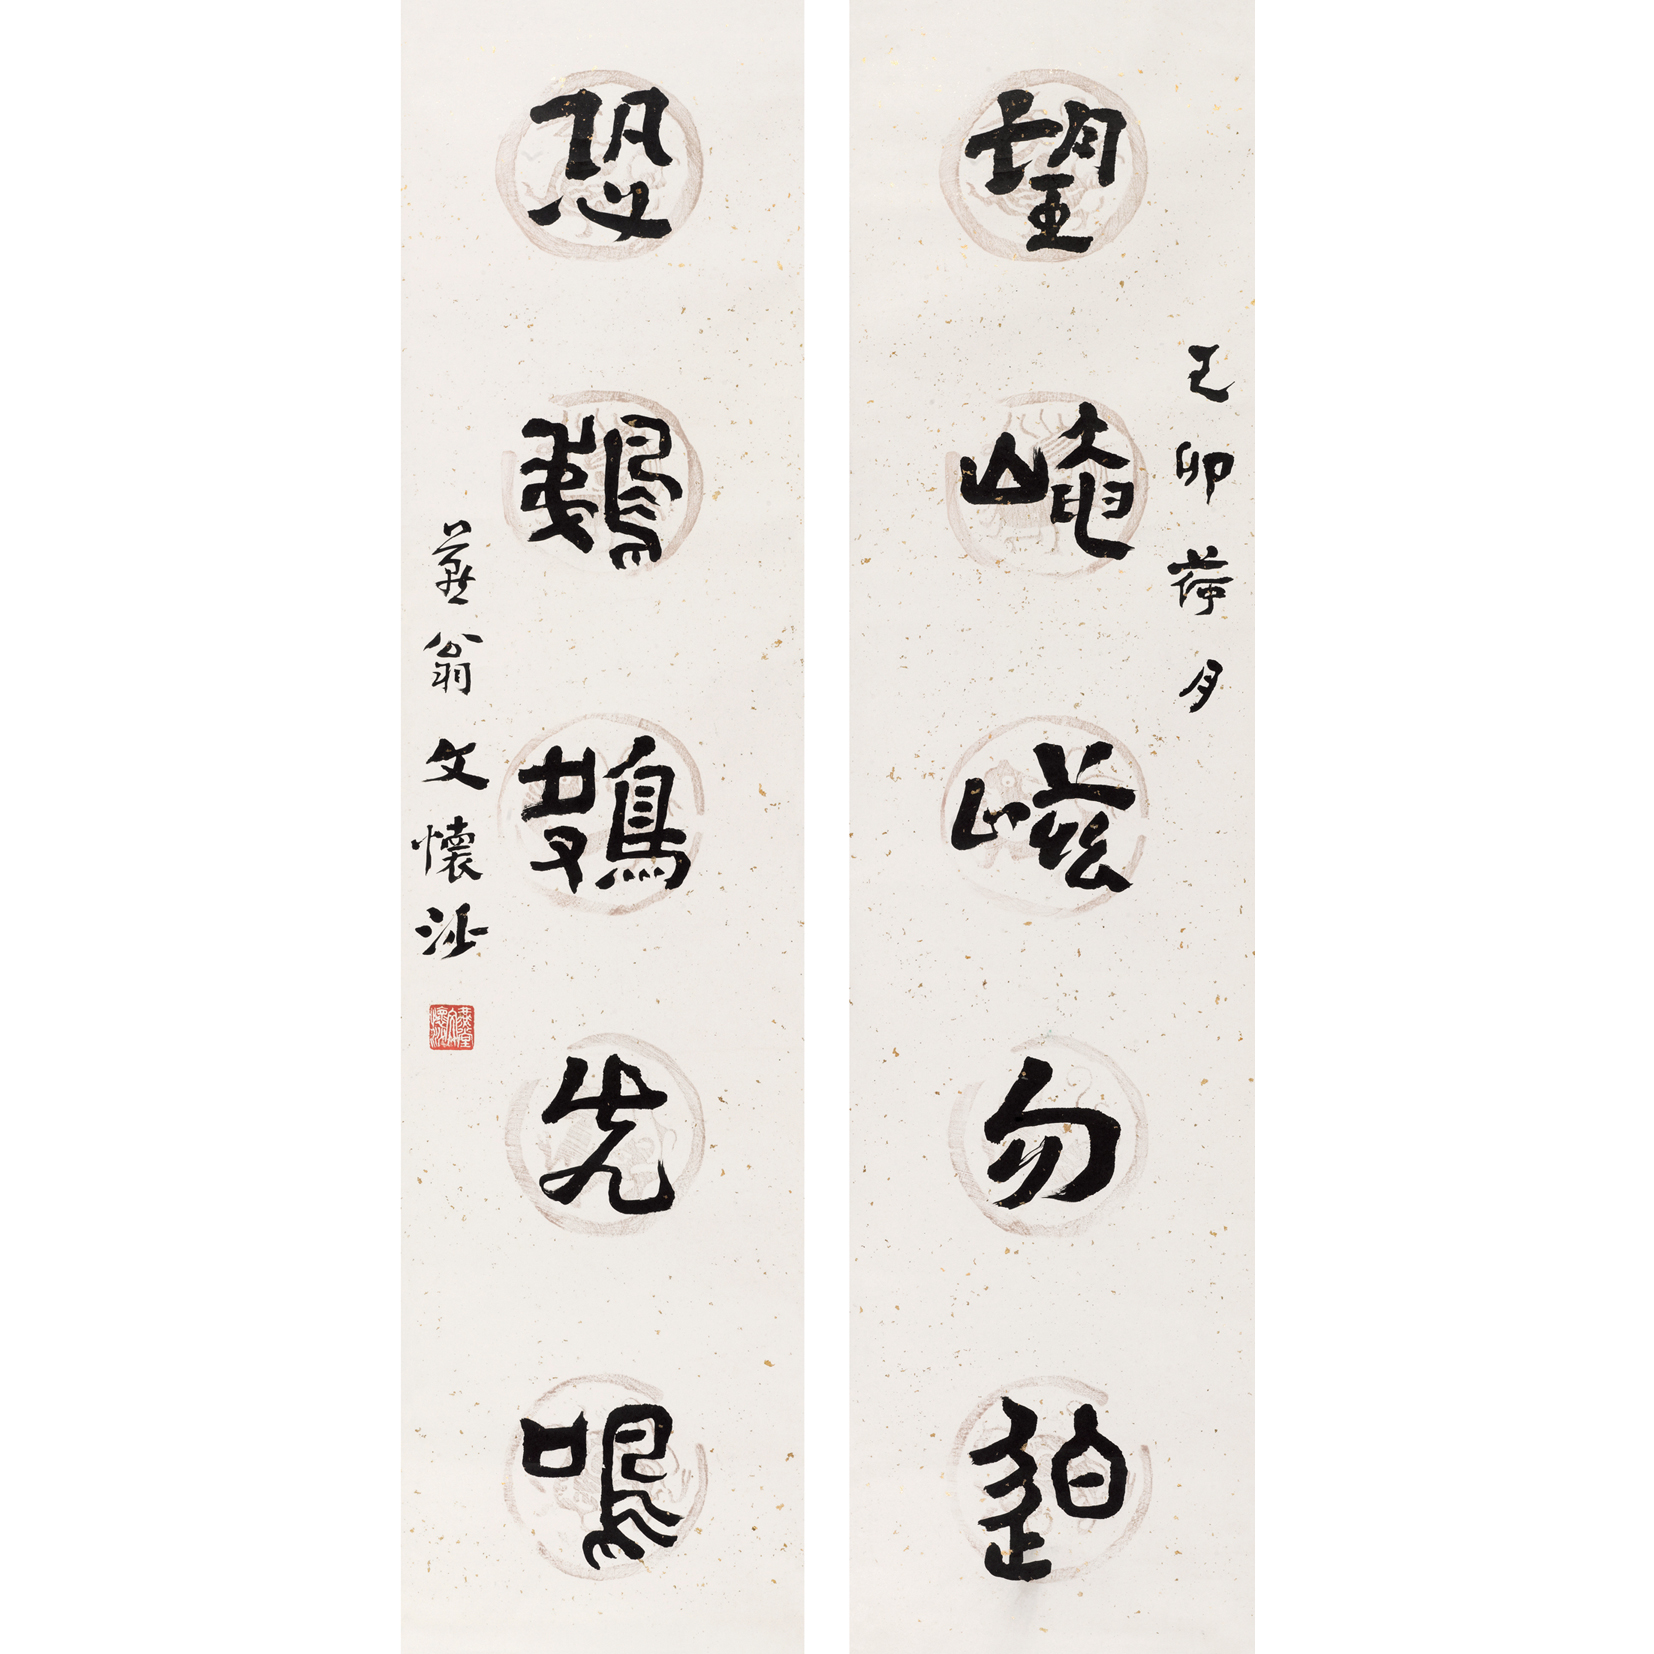 望崦嵫勿迫
己卯荷月
恐鵜鴂先鳴
燕翁文懷沙